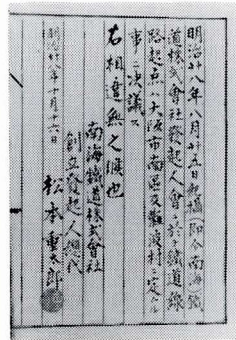 明治廿八年八月廿五日起福(即今南海鐵
道株式會社發起人會ニ於テ鐵道線
路起点ハ大阪市南區及難波村ニ定ムル
事ニ決議ス
右相違無之候也
南海鐵道株式會社
創立發起人總代
松本重太郎
明治廿八年十月十六日